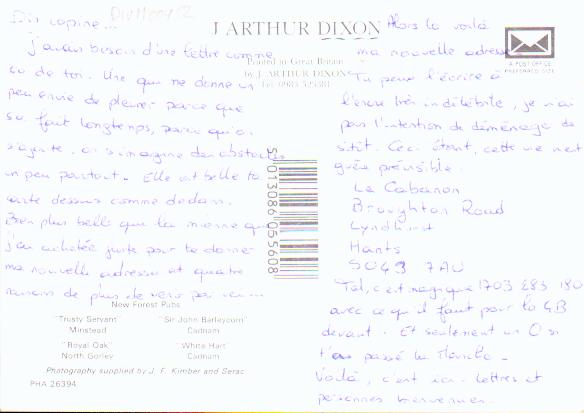 DIVM00112
Dis copine...
j'avais besoin d'une lettre comme
ça de toi. Une qui me donne un
peu envie de pleurer parce que
ça fait longtemps, parce qu'on
s'agite, on s'imagine des obstacles
un peu partout. Elle est belle ta
carte dessus comme dedans.
Bien plus belle que la mienne que
j'ai achetée juste pour te donner
ma nouvelle adresse et quatre
raisons de plus de venir par ici...
J ARTHUR DIXON
Printed in Great Britain
by J. ARTHUR DIXON
Tel: 0983 523381
A POST OFFICE
PREFERRED SIZE
5 013086 055608
New Forest Pubs
"Trusty Servant"
Minstead
"Sir John Barleycorn"
Cadnam
"Royal Oak"
North Gorley
"White Hart"
Cadnam
Photography supplied by J. F. Kimber and Serac
PHA 26394
Alors la voilà
ma nouvelle adresse
Tu peux l'écrire à
l'encre très indélébile, je n'ai
pas l'intention de déménager de
sitôt. Ceci étant, cette vie n'est
guère prévisible.
Le Cabanon
Broughton Road
Lyndhurst
Hants
SO43 7AU
Tél, c'est magique 1703 283 180
avec ce qu'il faut pour la GB
devant. Et seulement un 0 si
t'as passé la Manche.
Voilà, c'est ici. Lettres et
personnes bienvenues.